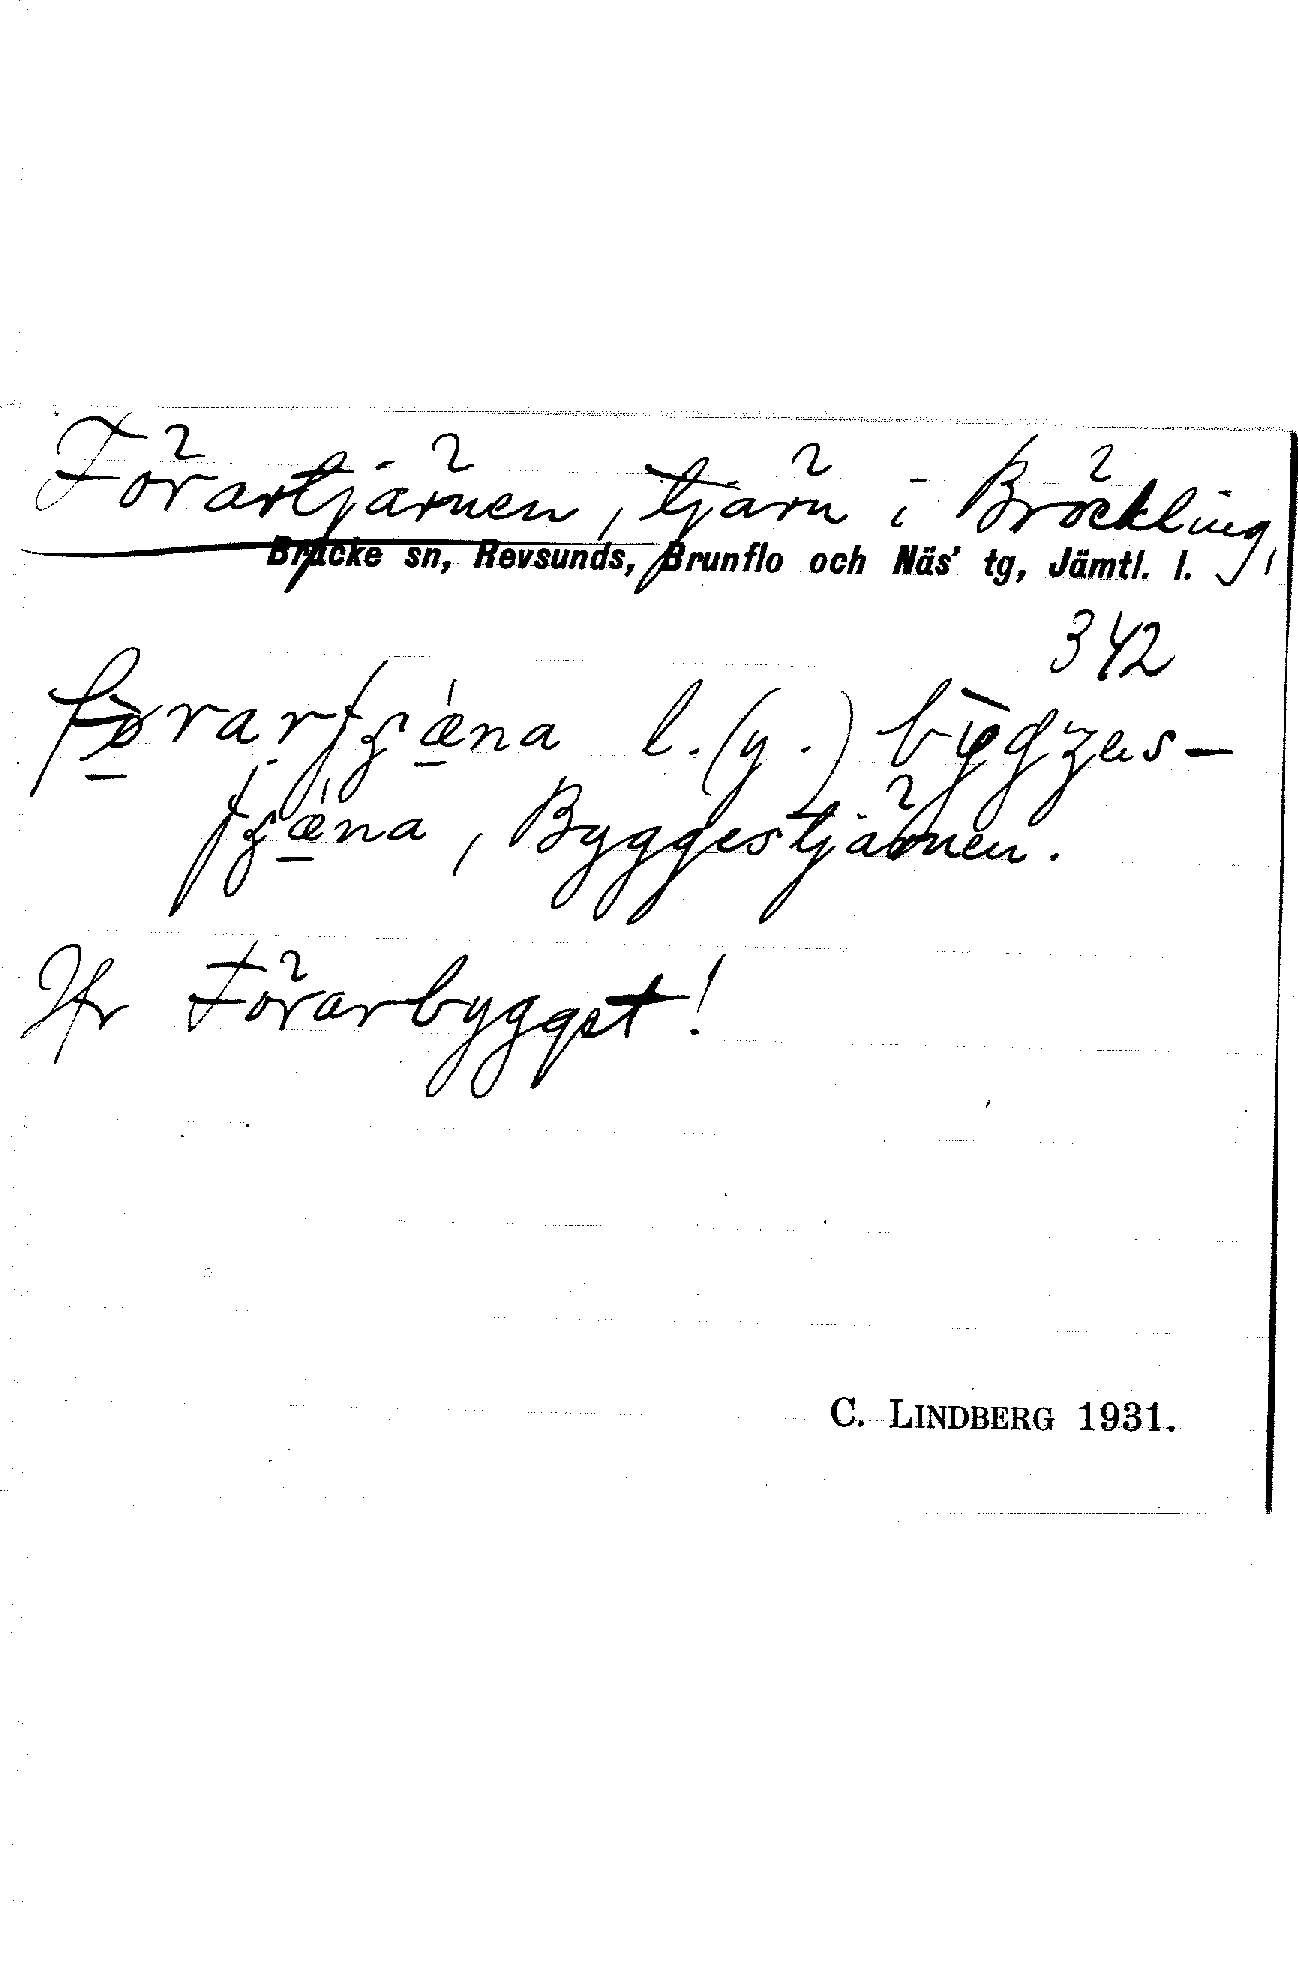 Förartjärnen, tjärn i Bröckling,
Bräcke sn, Revsunds, Brunflo och Näs' tg, Jämtl. l.
342
l. (y.)
, Byggestjärnen.
Jfr Förarbygget!
C. LINDBERG 1931.